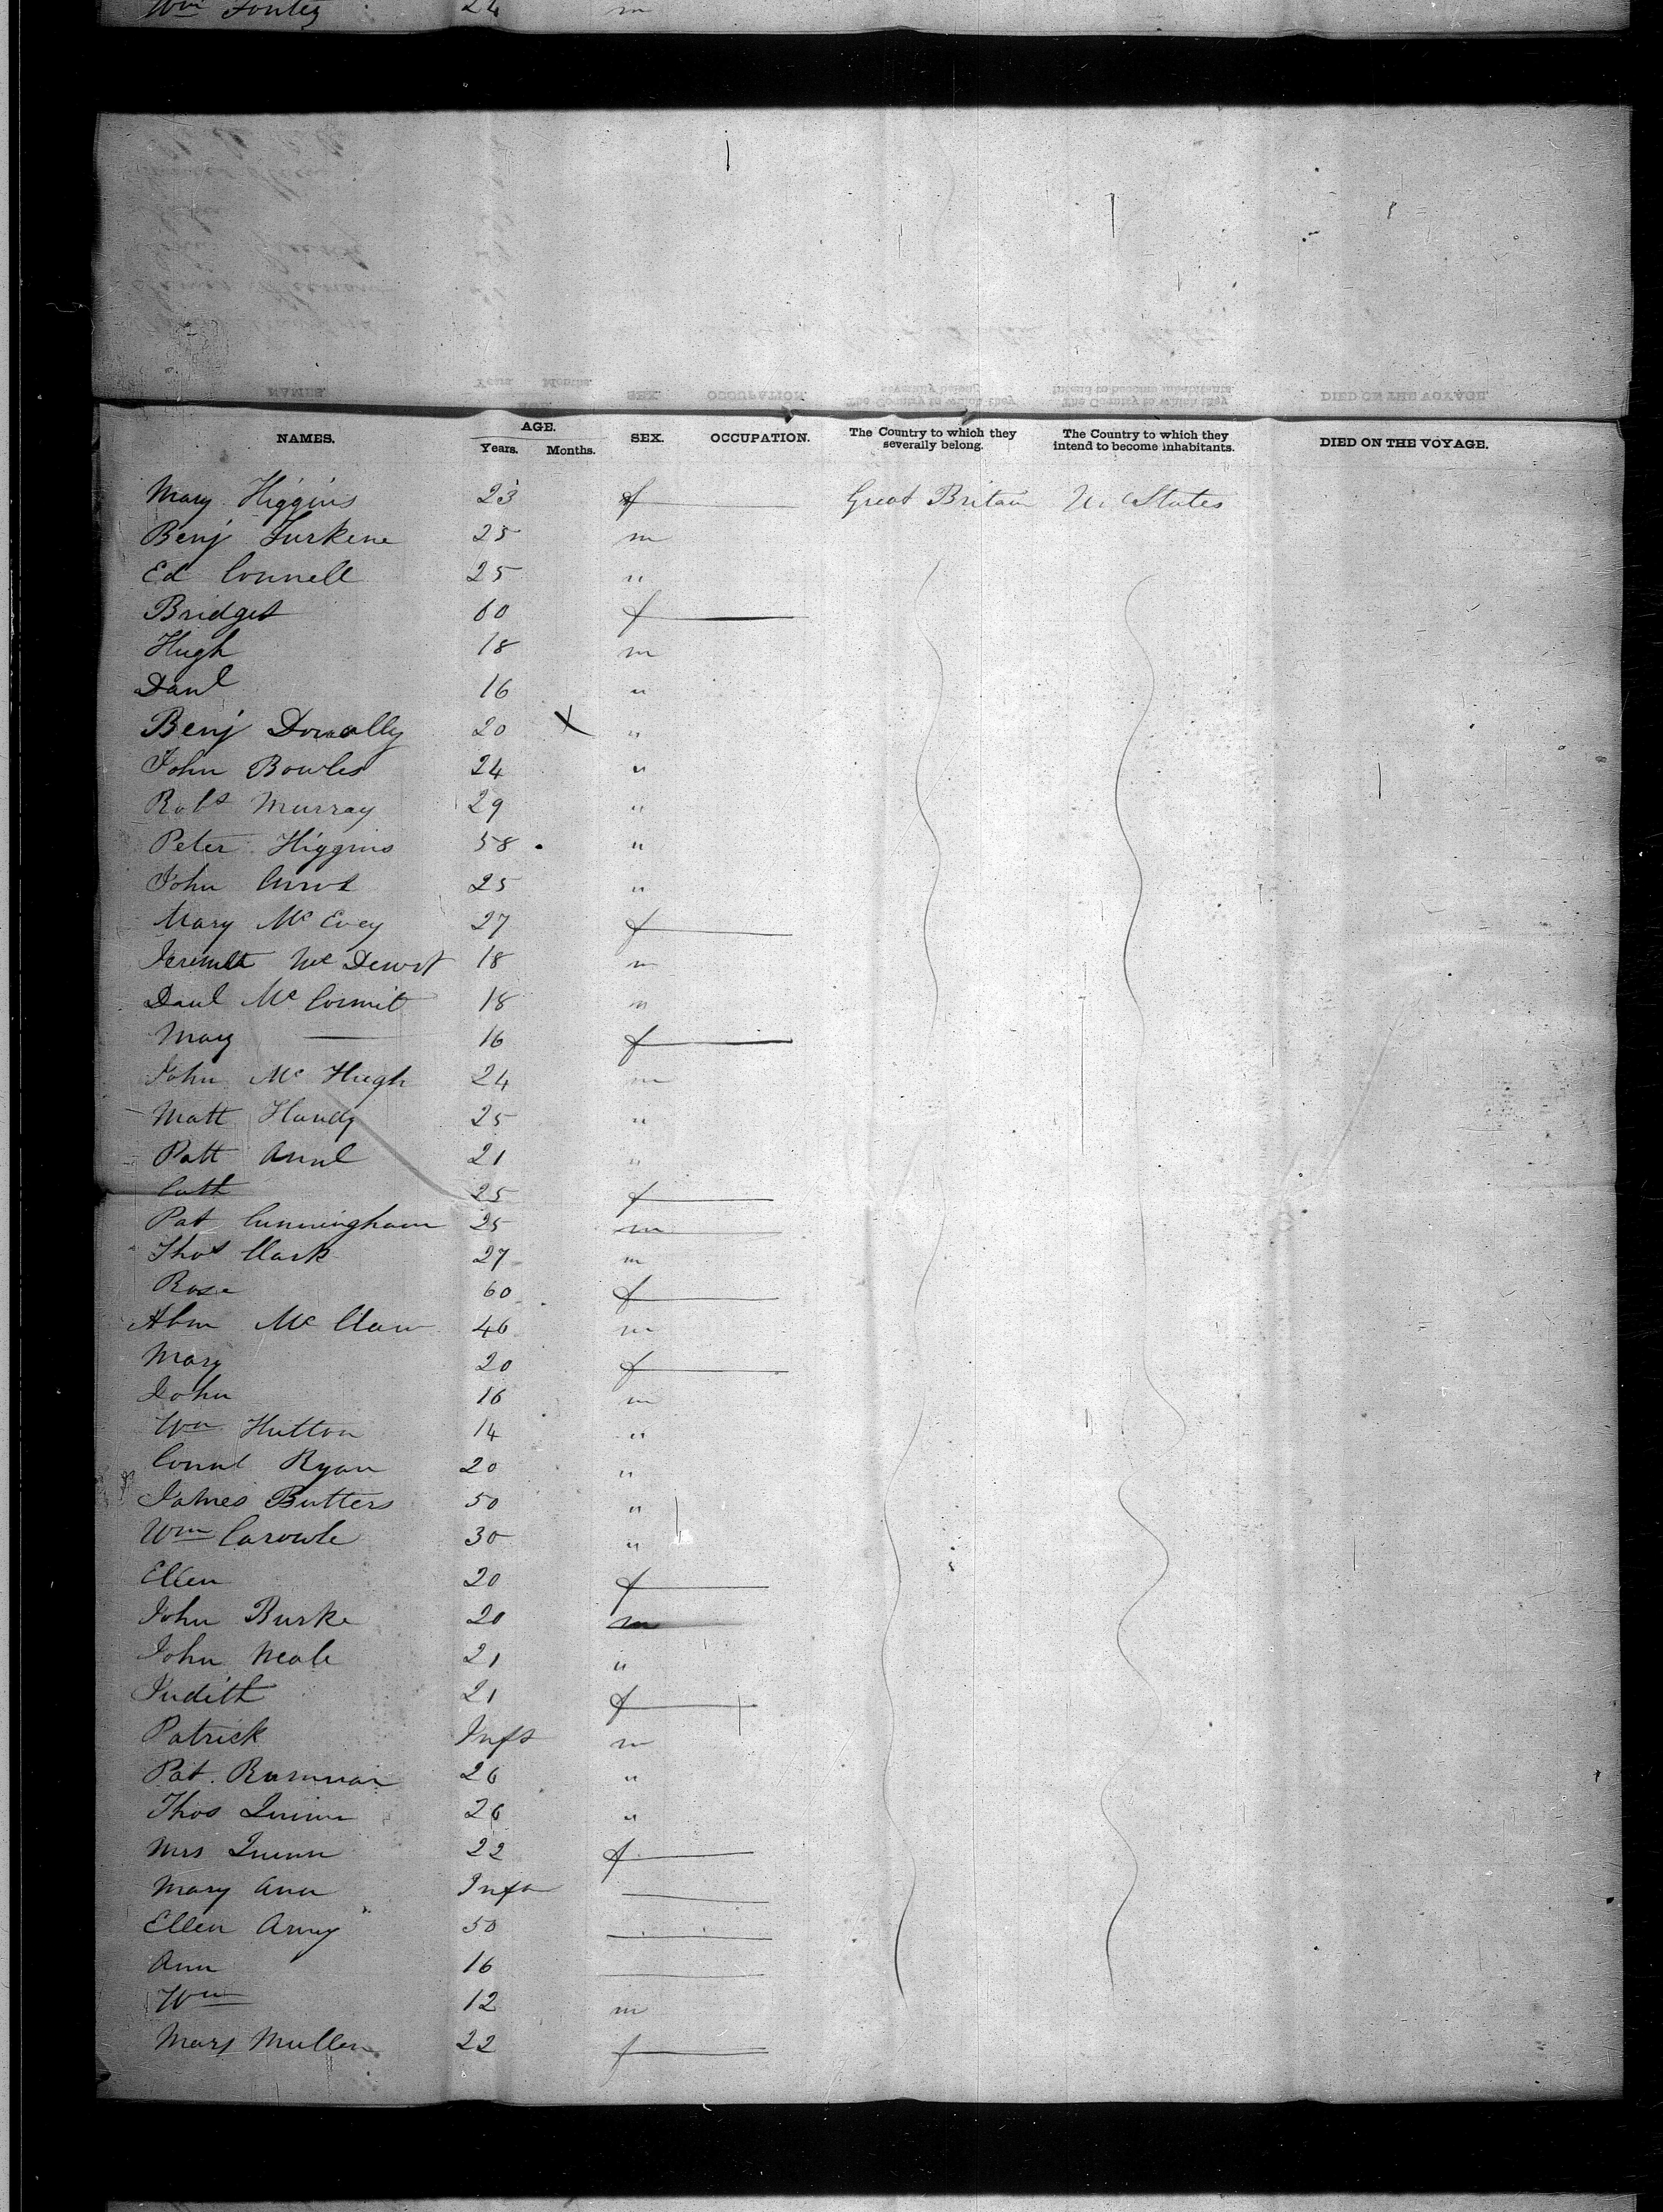 Wm Fontez 24 m
NAMES. AGE. SEX. OCCUPATION. The Country to which they severally belong. The Country to which they intend to become inhabitants. DIED ON THE VOYAGE.
Years. Months.
Mary Higgins 23 f Great Britain U. States
Benj 25 m
Ed Connell 25 "
Bridget 60 f
Hugh 18 m
Danl 16 "
Benj Donolly 20 X "
John Bowles 24 "
Robt Murray 29 "
Peter Higgins 58 "
John 25 "
Mary Mc Evey 27 f
Mc 18 m
Danl Mc Cormit 18 m
Mary — 16 f
John Mc Hugh 24 m
Matt Handy 25 "
Patt 21 "
Cath 25 f
Pat Cunningham 25 m
Thos Clark 27 m
Rose 60 f
Abm Mc Claw 46 m
Mary 20 f
John 16 m
Wm Hutton 14 "
Ryan 20 "
James Butters 50 "
Wm 30 "
Ellen 20 f
John Burke 20 m
John Neale 21 "
Judith 21 f
Patrick Inft m
Pat. 26 "
Thos Quinn 26 "
Mrs Quinn 22 f
Mary Ann Inft
Ellen 50
Ann 16
Wm 12 m
Mary Mullen 22 f